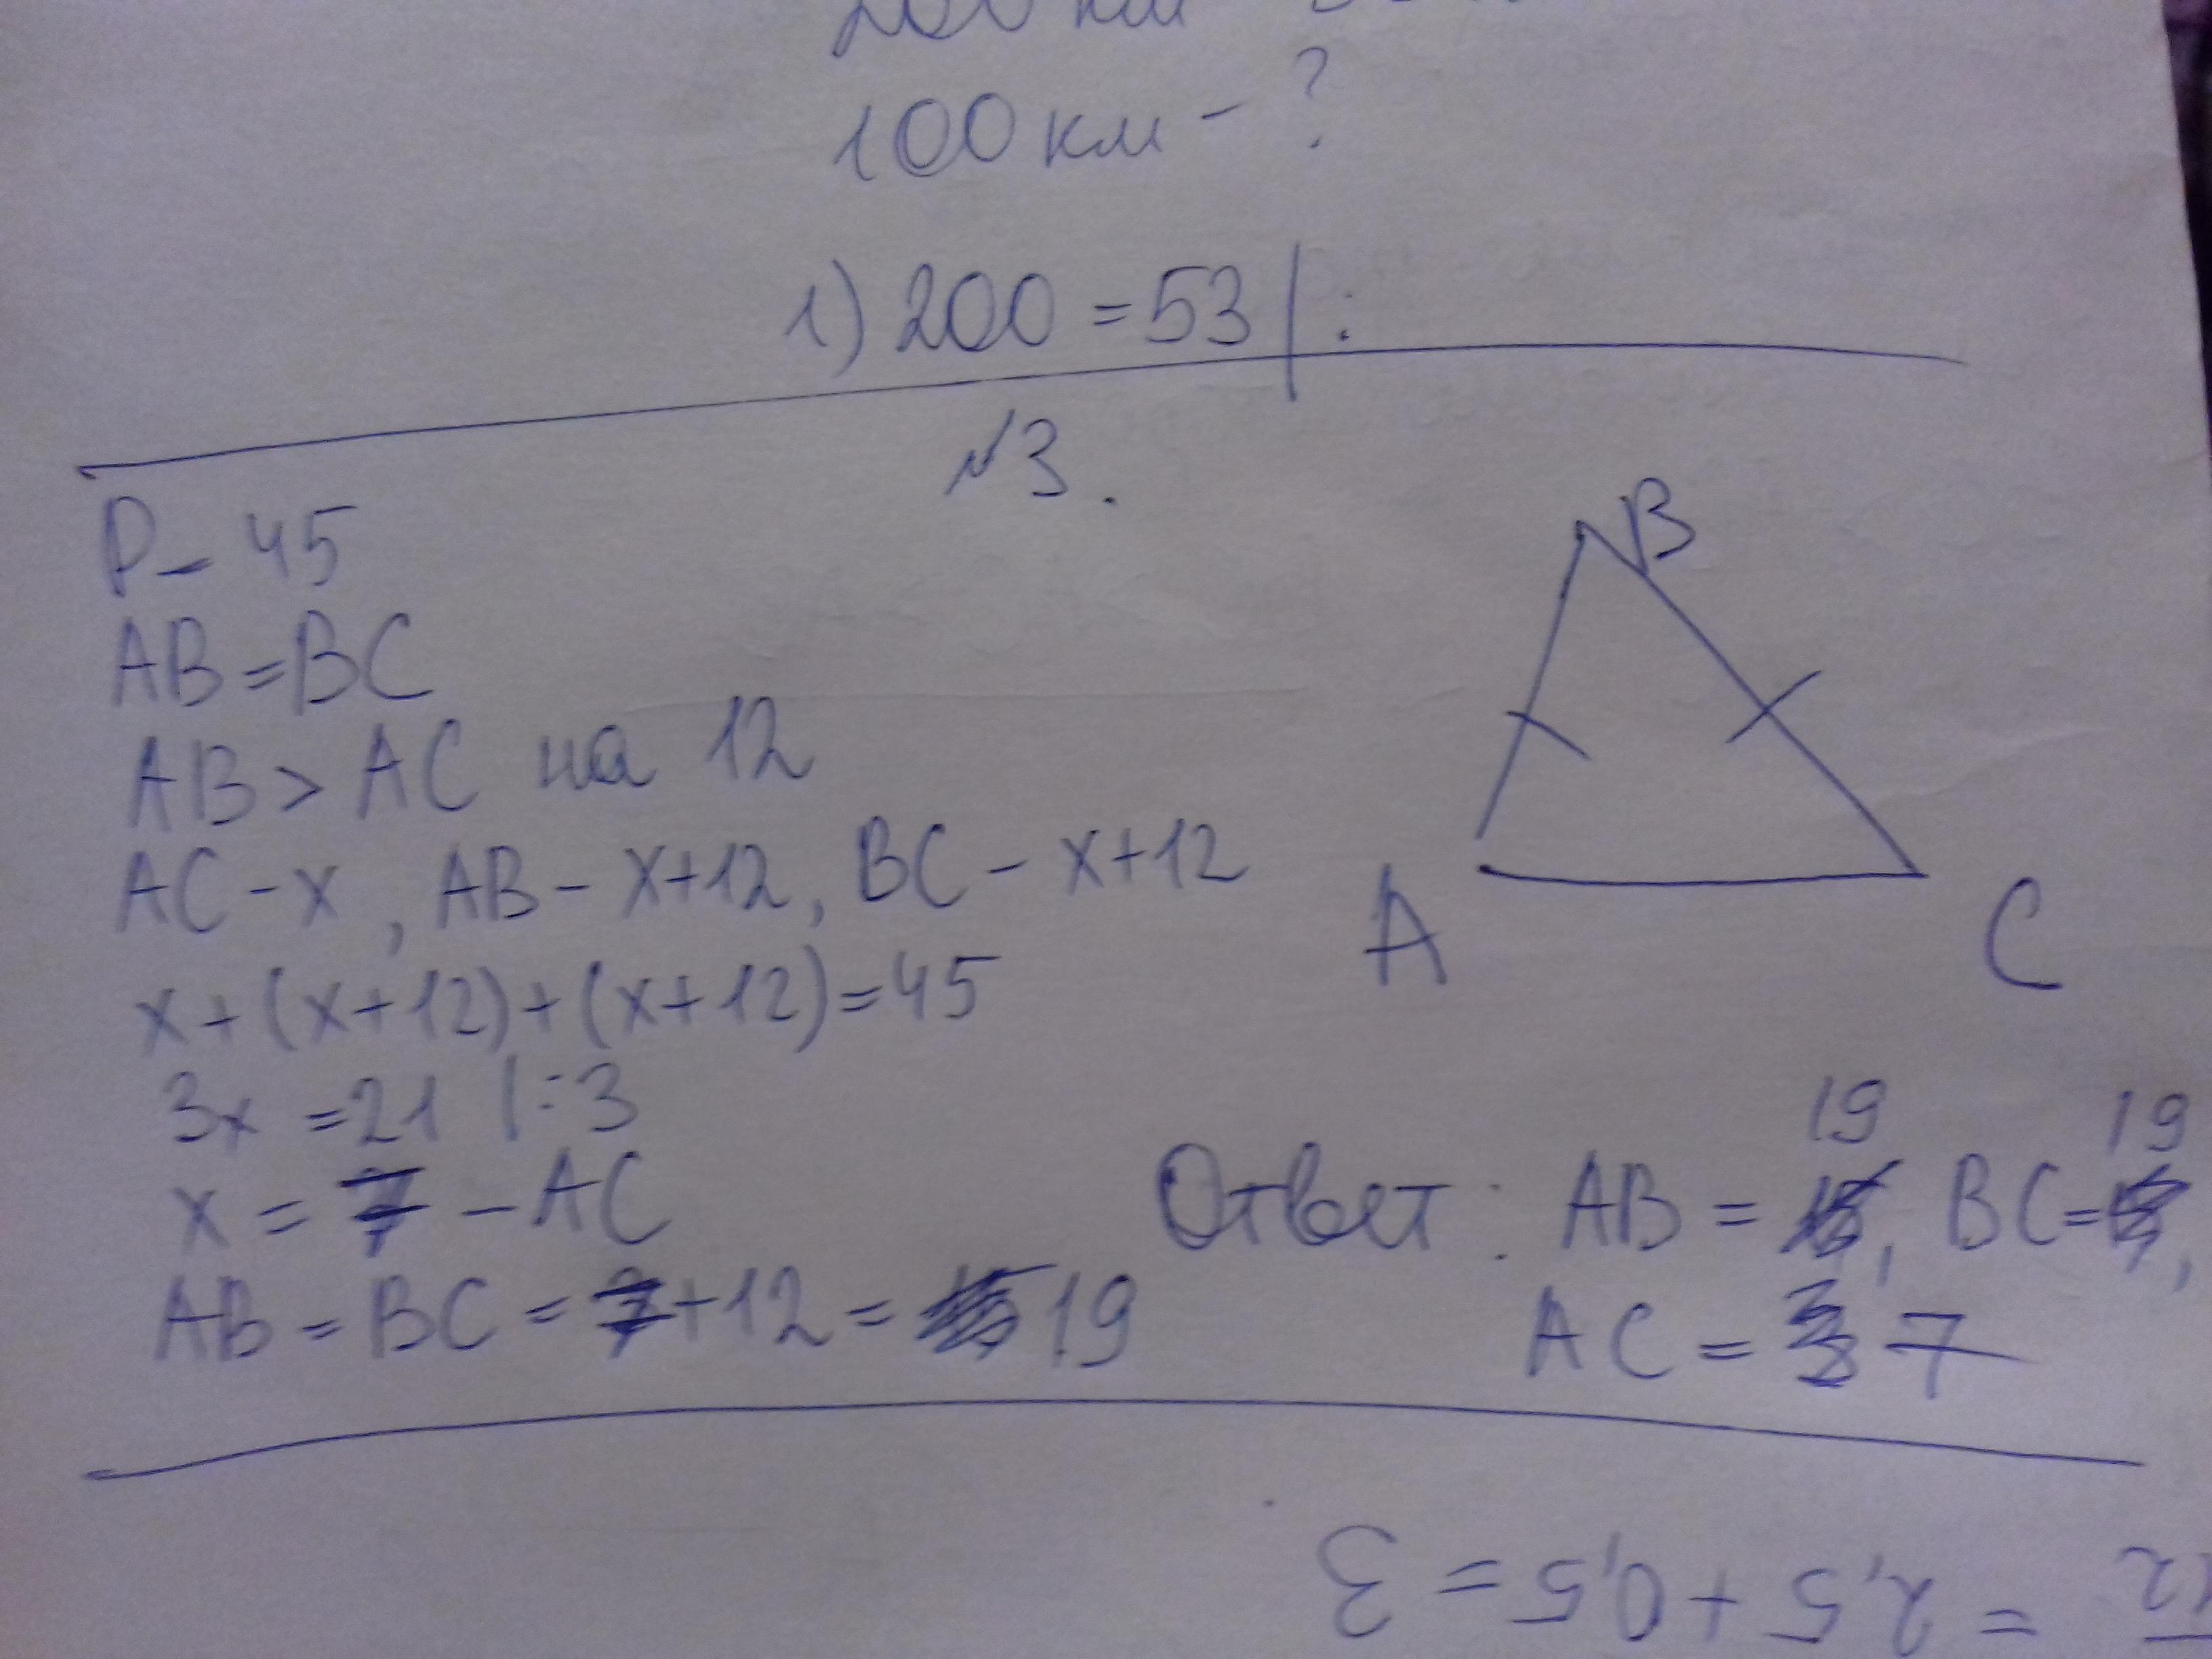 100 км - ?
1) 200 = 53 | :
№3.
P - 45
AB = BC
AB > AC на 12
AC - x , AB - x+12, BC - x+12
x + (x+12) + (x+12) = 45
3x = 21 | : 3
x = 7 - AC
AB = BC = 7 + 12 = 19
B
A
C
19 19
Ответ: AB = , BC = ,
AC = 7
= 2,5 + 0,5 = 3